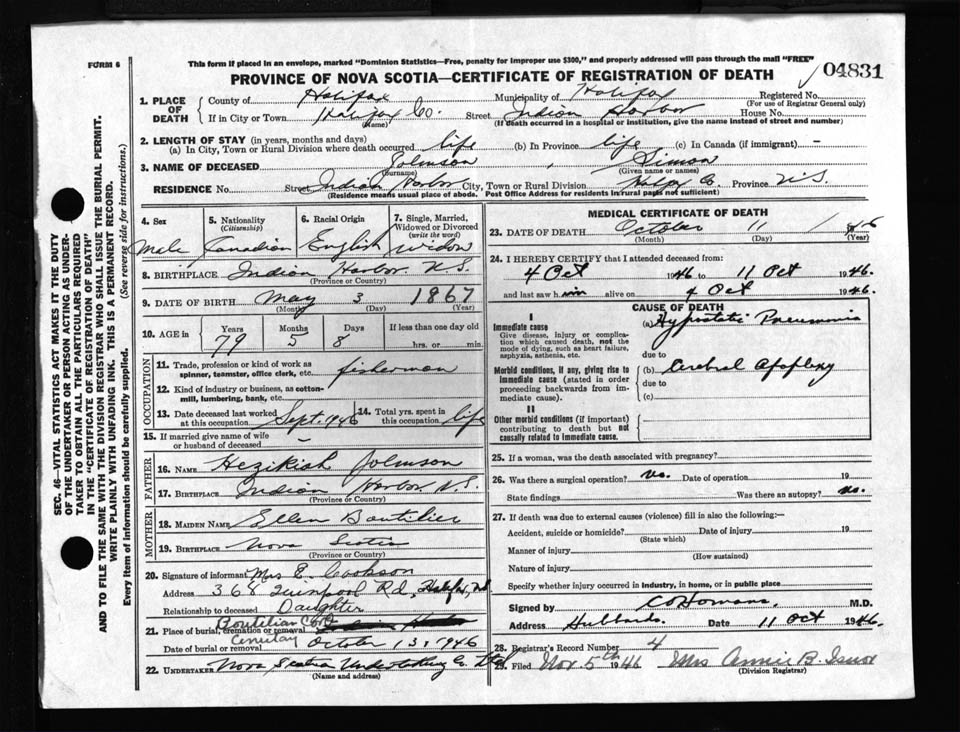 This form if placed in an envelope, marked "Dominion Statistics—Free, penalty for improper use $300," and properly addressed will pass through the mail "FREE"
FORM 6
PROVINCE OF NOVA SCOTIA—CERTIFICATE OF REGISTRATION OF DEATH
04831
1. PLACE OF DEATH
County of Halifax Municipality of Halifax Registered No.
(For use of Registrar General only)
If in City or Town Halifax Co. Street Indian Harbor House No.
(Name) (If death occurred in a hospital or institution, give the name instead of street and number)
2. LENGTH OF STAY (in years, months and days)
(a) In City, Town or Rural Division where death occurred life (b) In Province life (c) In Canada (if immigrant) –
3. NAME OF DECEASED Johnson Simon
(Surname) (Given name or names)
RESIDENCE No. Street Indian Harbor City, Town or Rural Division Halfax Co. Province N.S.
(Residence means usual place of abode. Post Office Address for residents in rural parts not sufficient)
SEC. 46—VITAL STATISTICS ACT MAKES IT THE DUTY
OF THE UNDERTAKER OR PERSON ACTING AS UNDER-
TAKER TO OBTAIN ALL THE PARTICULARS REQUIRED
IN THE "CERTIFICATE OF REGISTRATION OF DEATH"
AND TO FILE THE SAME WITH THE DIVISION REGISTRAR WHO SHALL ISSUE THE BURIAL PERMIT.
WRITE PLAINLY WITH UNFADING INK. THIS IS A PERMANENT RECORD.
Every item of information should be carefully supplied. (See reverse side for instructions.)
4. Sex
Male
5. Nationality
(Citizenship)
Canadian
6. Racial Origin
English
7. Single, Married,
Widowed or Divorced
(write the word)
Widow
8. BIRTHPLACE Indian Harbor N.S.
(Province or Country)
9. DATE OF BIRTH May 3 1867
(Month) (Day) (Year)
10. AGE in Years Months Days If less than one day old
79 5 8 hrs. or min.
OCCUPATION
11. Trade, profession or kind of work as
spinner, teamster, office clerk, etc. fisherman
12. Kind of industry or business, as cotton-
mill, lumbering, bank, etc.
13. Date deceased last worked
at this occupation Sept. 1946
14. Total yrs. spent in
this occupation life
15. If married give name of wife
or husband of deceased –
FATHER
16. NAME Hezikiah Johnson
17. BIRTHPLACE Indian Harbor N.S.
(Province or Country)
MOTHER
18. MAIDEN NAME Ellen Boutilier
19. BIRTHPLACE Nova Scotia
(Province or Country)
20. Signature of informant Mrs E. Cookson
Address 368 Rd, Halifax, N.S.
Relationship to deceased Daughter
21. Place of burial, cremation or removal Boutilier
Cemetary
Date of burial or removal October 13, 1946
22. UNDERTAKER Nova Scotia Undertaking Co. Ltd
(Name and address)
MEDICAL CERTIFICATE OF DEATH
23. DATE OF DEATH October 11 1946
(Month) (Day) (Year)
24. I HEREBY CERTIFY that I attended deceased from:
4 Oct 1946 to 11 Oct 1946.
and last saw him alive on 4 Oct 1946.
CAUSE OF DEATH
I
Immediate cause
Give disease, injury or complica-
tion which caused death, not the
mode of dying, such as heart failure,
asphyxia, asthenia, etc.
(a) Hypostatic Pneumonia
due to
Morbid conditions, if any, giving rise to
immediate cause (stated in order
proceeding backwards from im-
mediate cause).
(b) Cerebral Apoplexy
due to
(c)
II
Other morbid conditions (if important)
contributing to death but not
causally related to immediate cause.
25. If a woman, was the death associated with pregnancy?
26. Was there a surgical operation? no. Date of operation 19
State findings Was there an autopsy? no.
27. If death was due to external causes (violence) fill in also the following:—
Accident, suicide or homicide? Date of injury 19
(State which)
Manner of injury
(How sustained)
Nature of injury
Specify whether injury occurred in industry, in home, or in public place
Signed by M.D.
Address Hubbards. Date 11 Oct 1946.
28. Registrar's Record Number 4
29. Filed Nov 5th 1946 Mrs Annie B. Isnor
(Division Registrar)